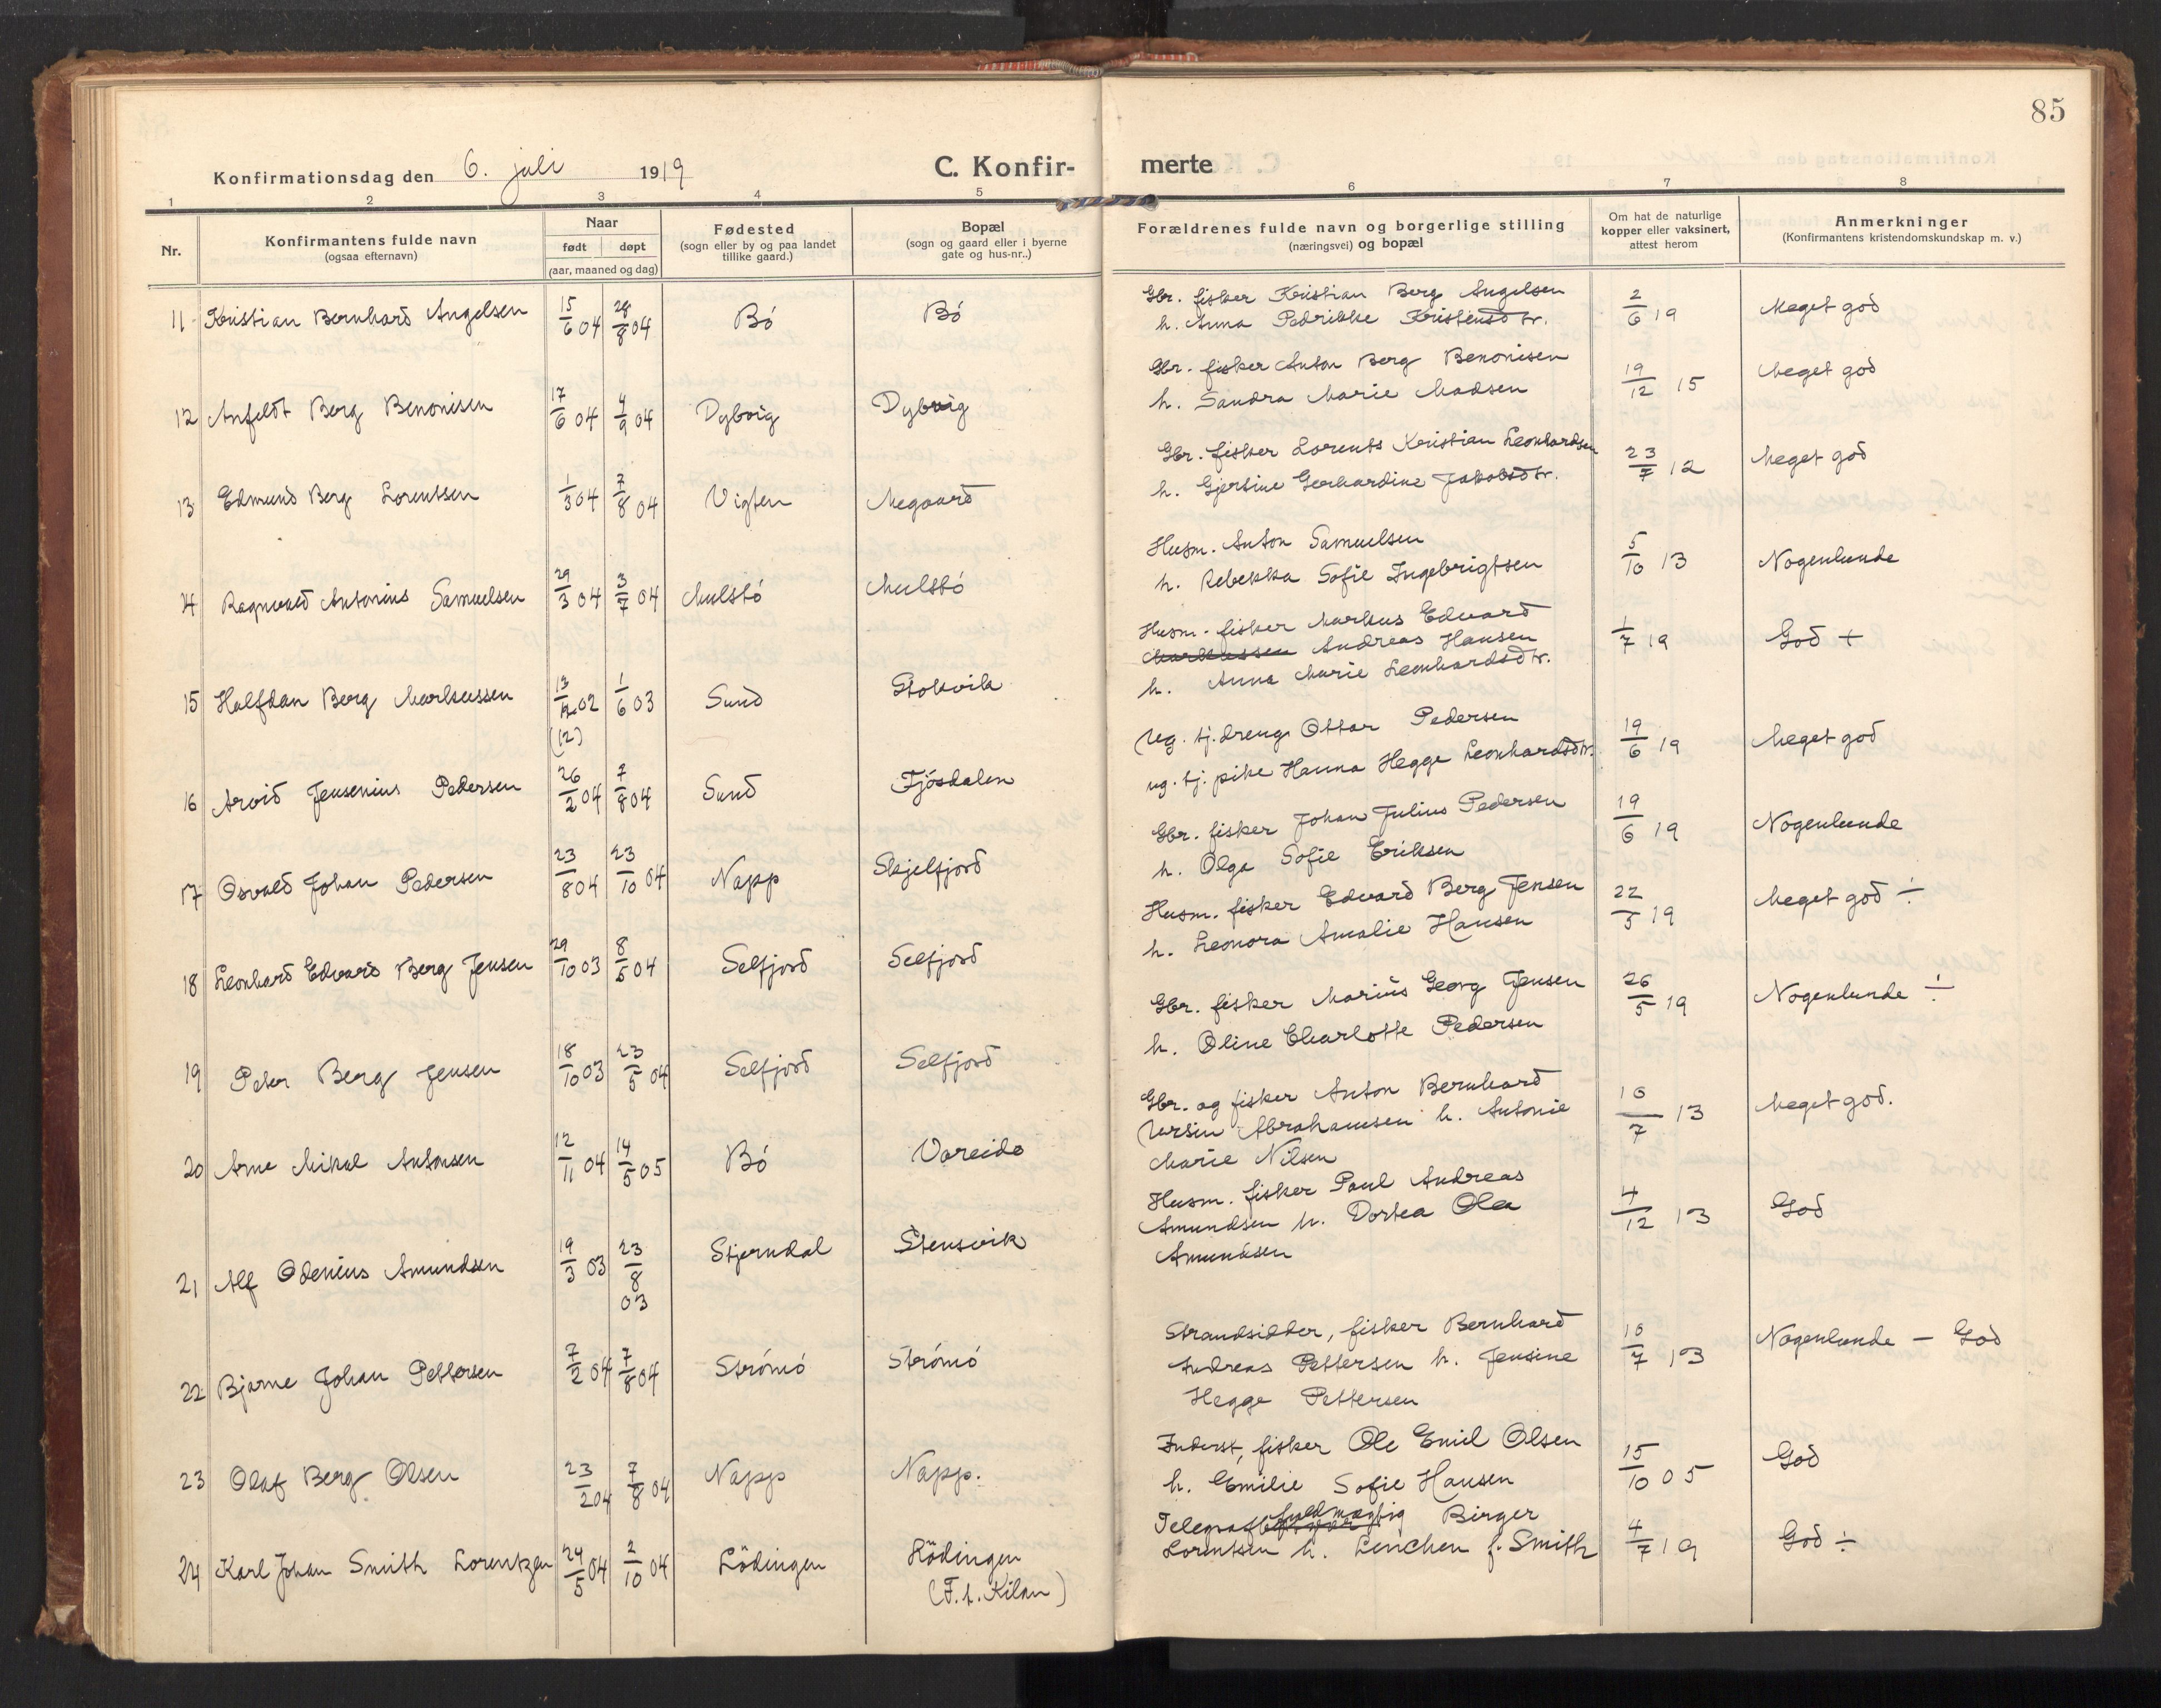 85
Konfirmationsdag den 6. juli 1919
C. Konfir-
merte
1 2 3 4 5 6 7 8
Nr.
Konfirmantens fulde navn
(ogsaa efternavn)
Naar
født døpt
(aar, maaned og dag)
Fødested
(sogn eller by og paa landet
tillike gaard.)
Bopæl
(sogn og gaard eller i byerne
gate og hus-nr..)
Forældrenes fulde navn og borgerlige stilling
(næringsvei) og bopæl
Om hat de naturlige
kopper eller vaksinert,
attest herom
Anmerkninger
(Konfirmantens kristendomskundskap m. v.)
11 Kristian Bernhard Angelsen 15/6 04 28/8 04 Bó Bó
Gbr. fisker Kristian Berg Angelsen
h. Anna Fredrikke Kristensdtr.
2/6 19 Meget god
12 Anfeldt Berg Benonisen 17/6 04 4/9 04 Dybvig Dybvig
Gbr. fisker Anton Berg Benonisen
h. Sandra Marie Madsen
19/12 15 Meget god
13 Edmund Berg Lorentsen 1/3 04 7/8 04 Vigten Megaard
Gbr. fisker Lorents Kristian Leonhardsen
h. Gjertine Gerhardine Jakobsdtr.
23/7 12 Meget god
14 Ragnvald Antonius Samuelsen 29/3 04 3/7 04 Mulstó Mulstó
Husm. Anton Samuelsen
h. Rebekka Sofie Ingebrigtsen
5/10 13 Nogenlunde
15 Halfdan Berg Markussen 13/12 02 1/6 03 Sund Stokvik
(12)
Husm. fisker Markus Edvard
Markussen Andreas Hansen
h. Anna Marie Leonhardsdtr.
1/7 19 God +
16 Arvid Jensenius Pedersen 26/2 04 7/8 04 Sund Fjósdalen
Ug. tj. dreng Ottar Pedersen
ug. tj. pike Hanna Hegge Leonhardsdtr.
19/6 19 Meget god
17 Osvald Johan Pedersen 23/8 04 23/10 04 Napp Skjelfjord
Gbr. fisker Johan Julius Pedersen
h. Olga Sofie Eriksen
19/6 19 Nogenlunde
18 Leonhard Edvard Berg Jensen 29/10 03 8/5 04 Selfjord Selfjord
Husm. fisker Edvard Berg Jensen
h. Leonora Amalie Hansen
22/5 19 Meget god ÷
19 Peter Berg Jensen 18/10 03 23/5 04 Selfjord Selfjord
Gbr. fisker Marius Georg Jensen
h. Oline Charlotte Pedersen
26/5 19 Nogenlunde ÷
20 Arne Mikal Antonsen 12/11 04 14/5 05 Bó Vareide
Gbr. og fisker Anton Bernhard
Ursin Abrahamsen h. Antonie
Marie Nilsen
10/7 13 Meget god.
21 Alf Odenius Amundsen 19/3 03 23/8 03 Stjerndal Stensvik
Husm. fisker Paul Andreas
Amundsen h. Dortea Olea
Amundsen
4/12 13 God
22 Bjarne Johan Pettersen 7/2 04 7/8 04 Strómó Strómó
Strandsidder, fisker Bernhard
Andreas Pettersen h. Jensine
Hegge Pettersen
10/7 13 Nogenlunde – God
23 Olaf Berg Olsen 23/2 04 7/8 04 Napp Napp.
Inderst, fisker Ole Emil Olsen
h. Emilie Sofie Hansen
15/10 05 God
24 Karl Johan Smith Lorentzen 24/5 04 2/10 04 Lödingen Hödingen
(F. t. Kilan)
Telegraffuldmægtig Birger
Lorentsen h. Lenchen f. Smith
4/7 19 God ÷